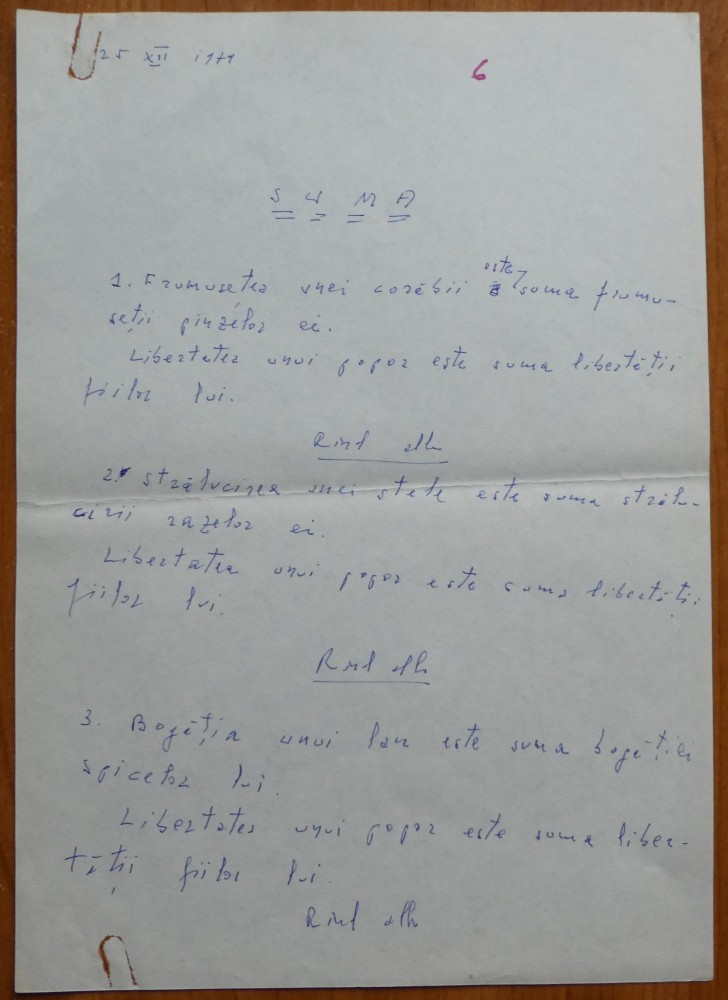 25 XII 1971
6
SUMA
1. Frumusețea unei corăbii este suma frumu-
seții pînzelor ei.
Libertatea unui popor este suma libertății
fiilor lui.
Rînd alb
2. Strălucirea unei stele este suma strălu-
cirii razelor ei.
Libertatea unui popor este suma libertății
fiilor lui.
Rînd alb
3. Bogăția unui lan este suma bogăției
spicelor lui.
Libertatea unui popor este suma liber-
tății fiilor lui.
Rînd alb